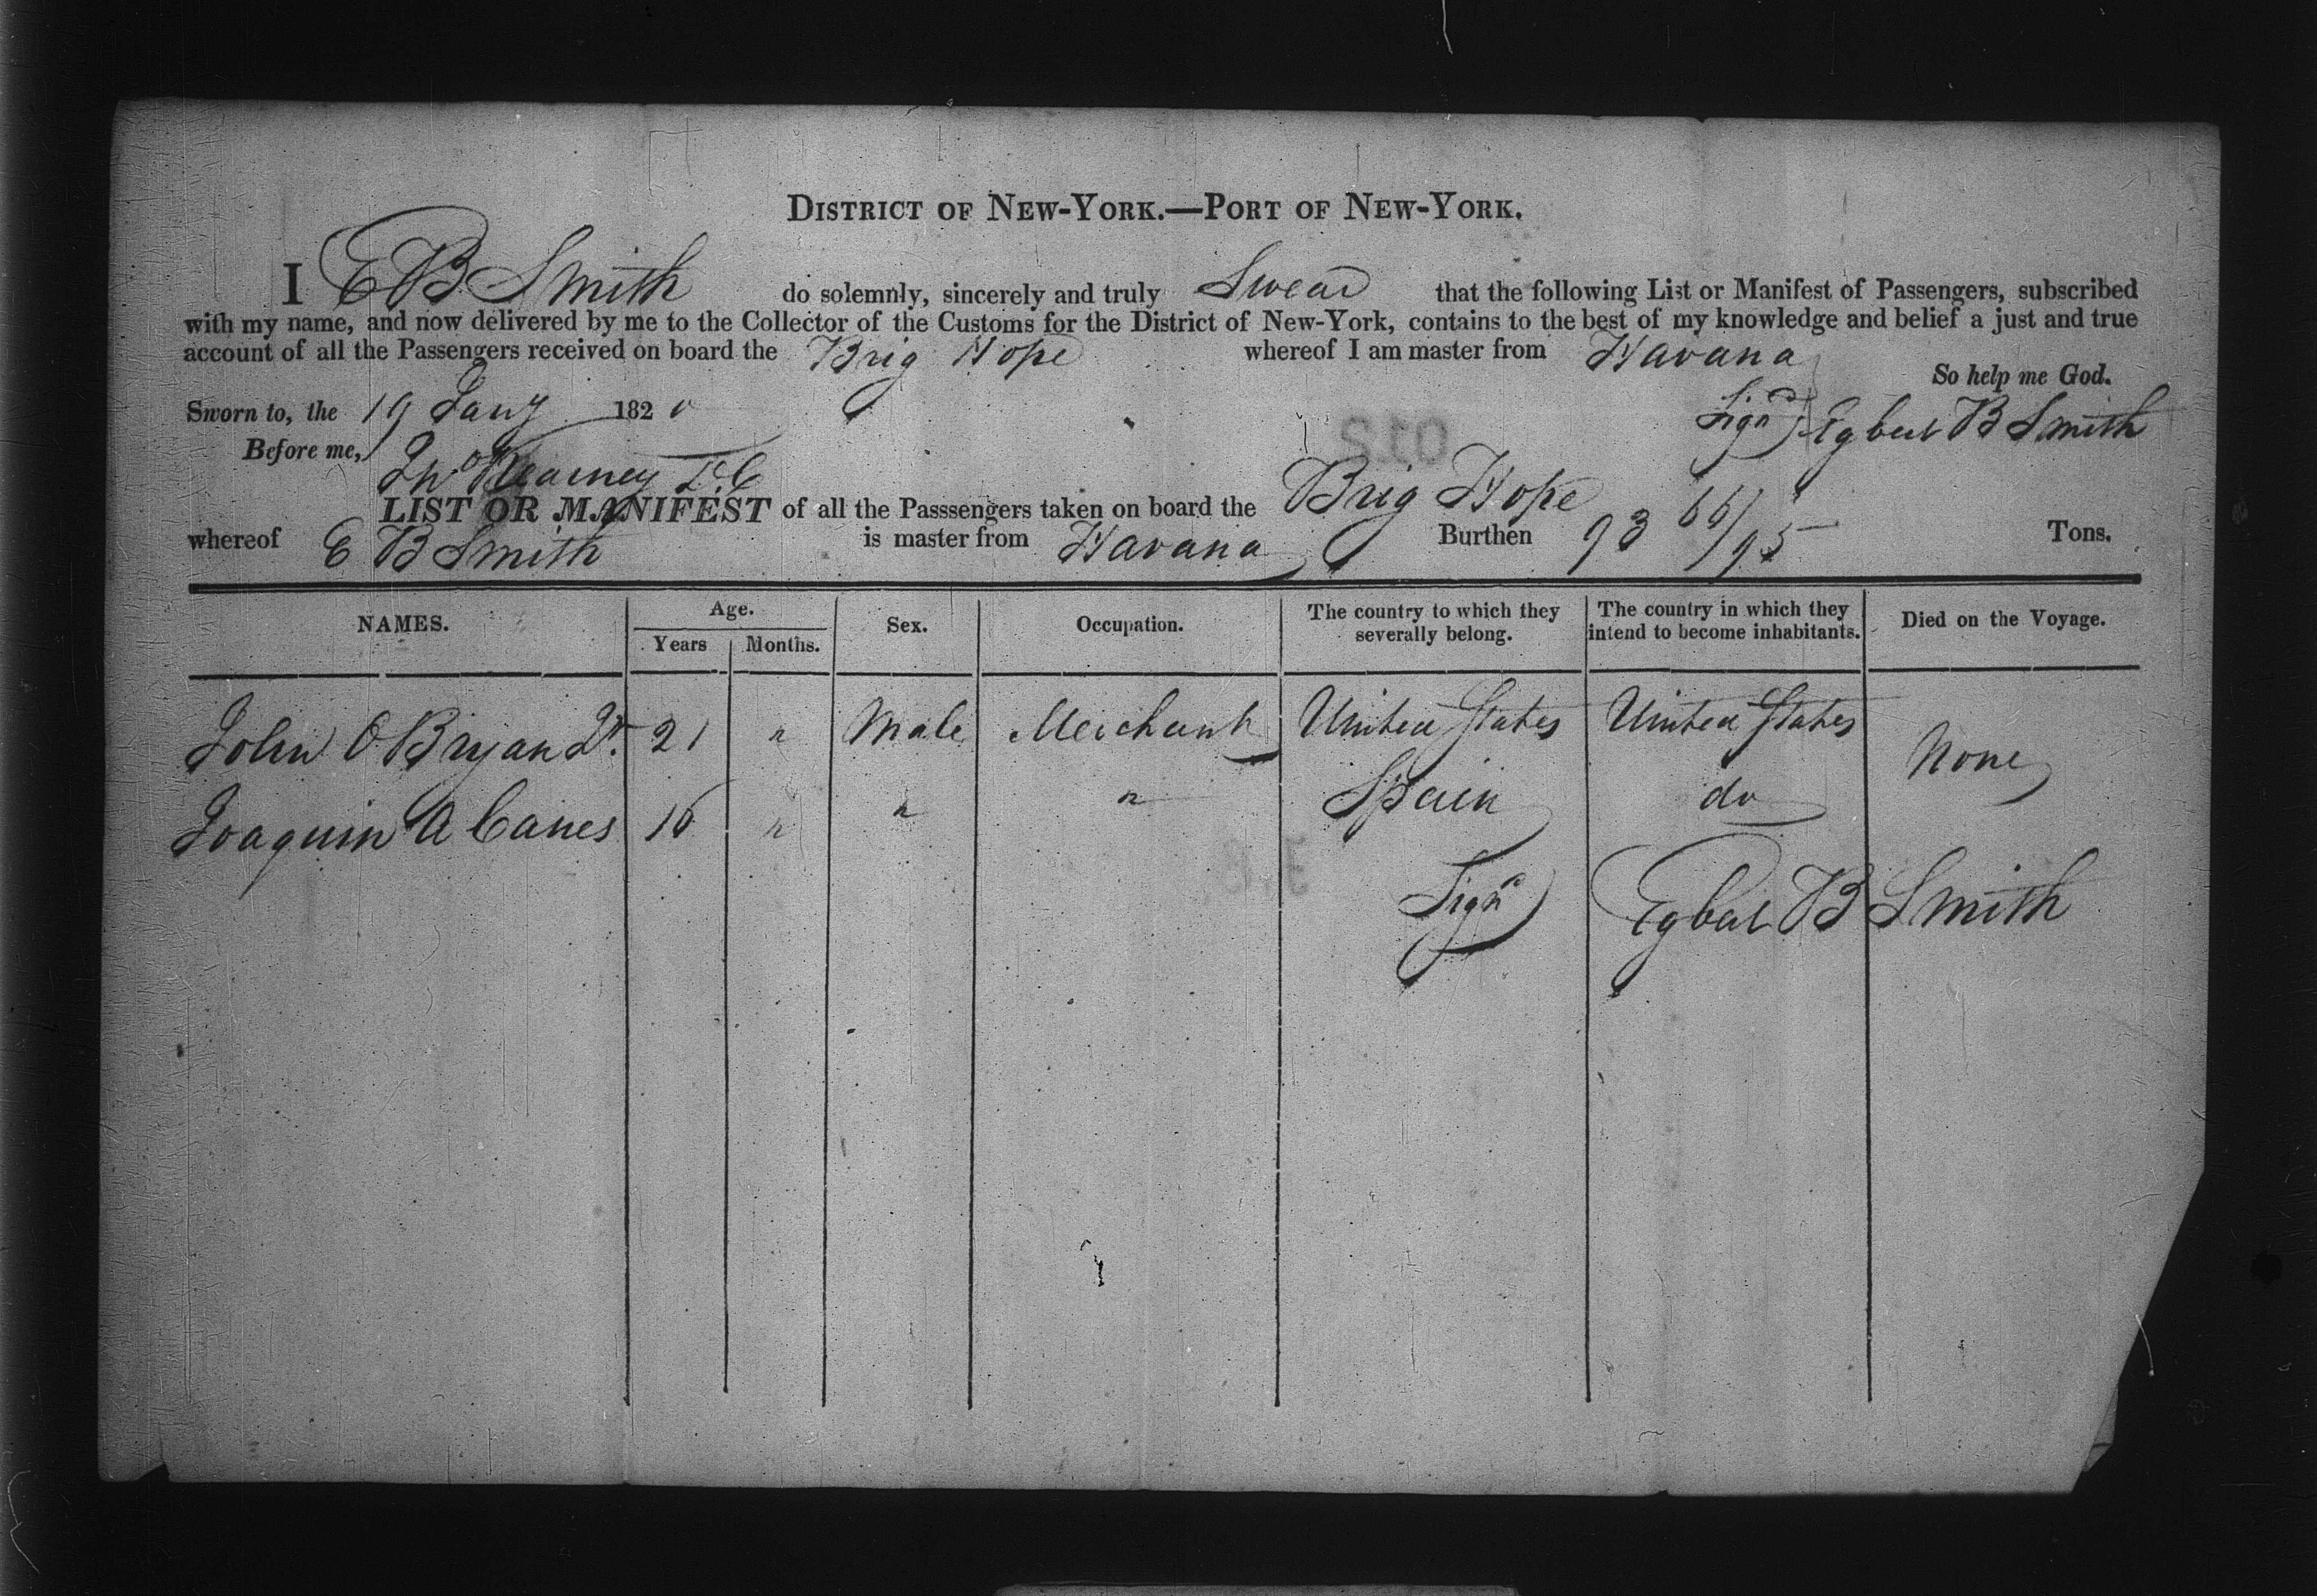 DISTRICT OF NEW-YORK.—PORT OF NEW-YORK.
I E B Smith do solemnly, sincerely and truly Swear that the following List or Manifest of Passengers, subscribed
with my name, and now delivered by me to the Collector of the Customs for the District of New-York, contains to the best of my knowledge and belief a just and true
account of all the Passengers received on board the Brig Hope whereof I am master from Havana
So help me God.
Sworn to, the 19 Jany 1820 Signd Egbert B Smith
Before me,
Kearney
LIST OR MANIFEST of all the Passsengers taken on board the Brig Hope
whereof E B Smith is master from Havana Burthen 93 66/95 Tons.
NAMES. Age. Years Months. Sex. Occupation. The country to which they severally belong. The country in which they intend to become inhabitants. Died on the Voyage.
John O Bryan Jr. 21 " Male Merchant United States United States None
Joaquin A Canes 16 " " " Spain do
Signd Egbert B Smith